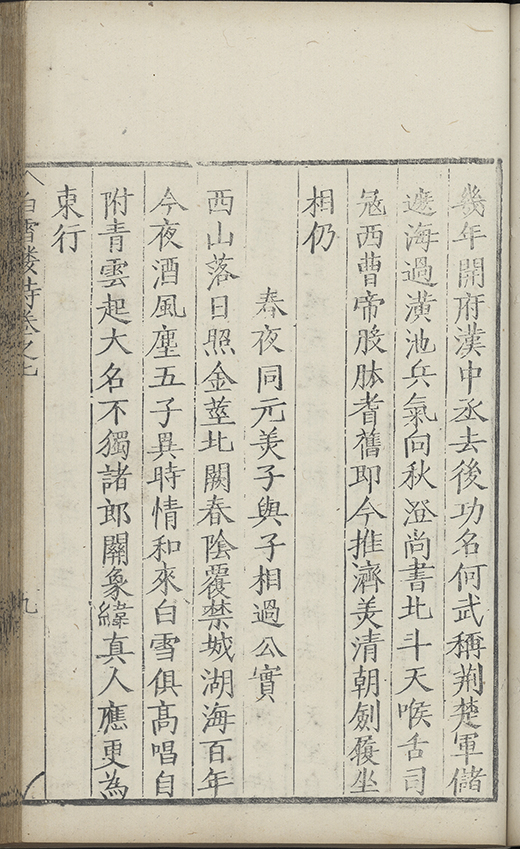 幾年開府漢中丞去後功名何武稱荆楚軍儲
遮海過潢池兵氣向秋澄尚書北斗天喉舌司
冦西曹帝股肱耆舊即今推濟美清朝劍履坐
相仍
春夜同元美子與子相過公實
西山落日照金莖北闕春陰覆禁城湖海百年
今夜酒風塵五子異時情和來白雪俱高唱自
附青雲起大名不獨諸郎關象緯真人應更為
東行
白雪樓詩卷之七
九